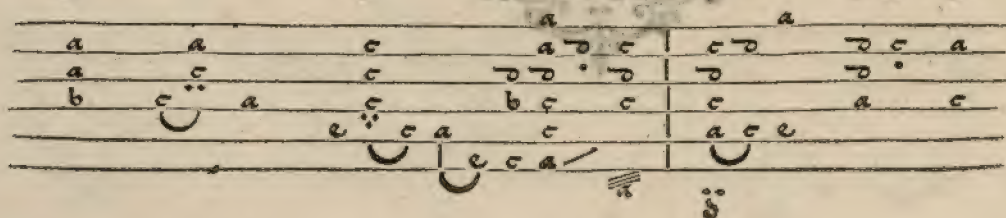 a a
a a c a d c c d d c a
a c c d d d d d
b c a c b c c c a c
e c a c a c e
e c a
///a